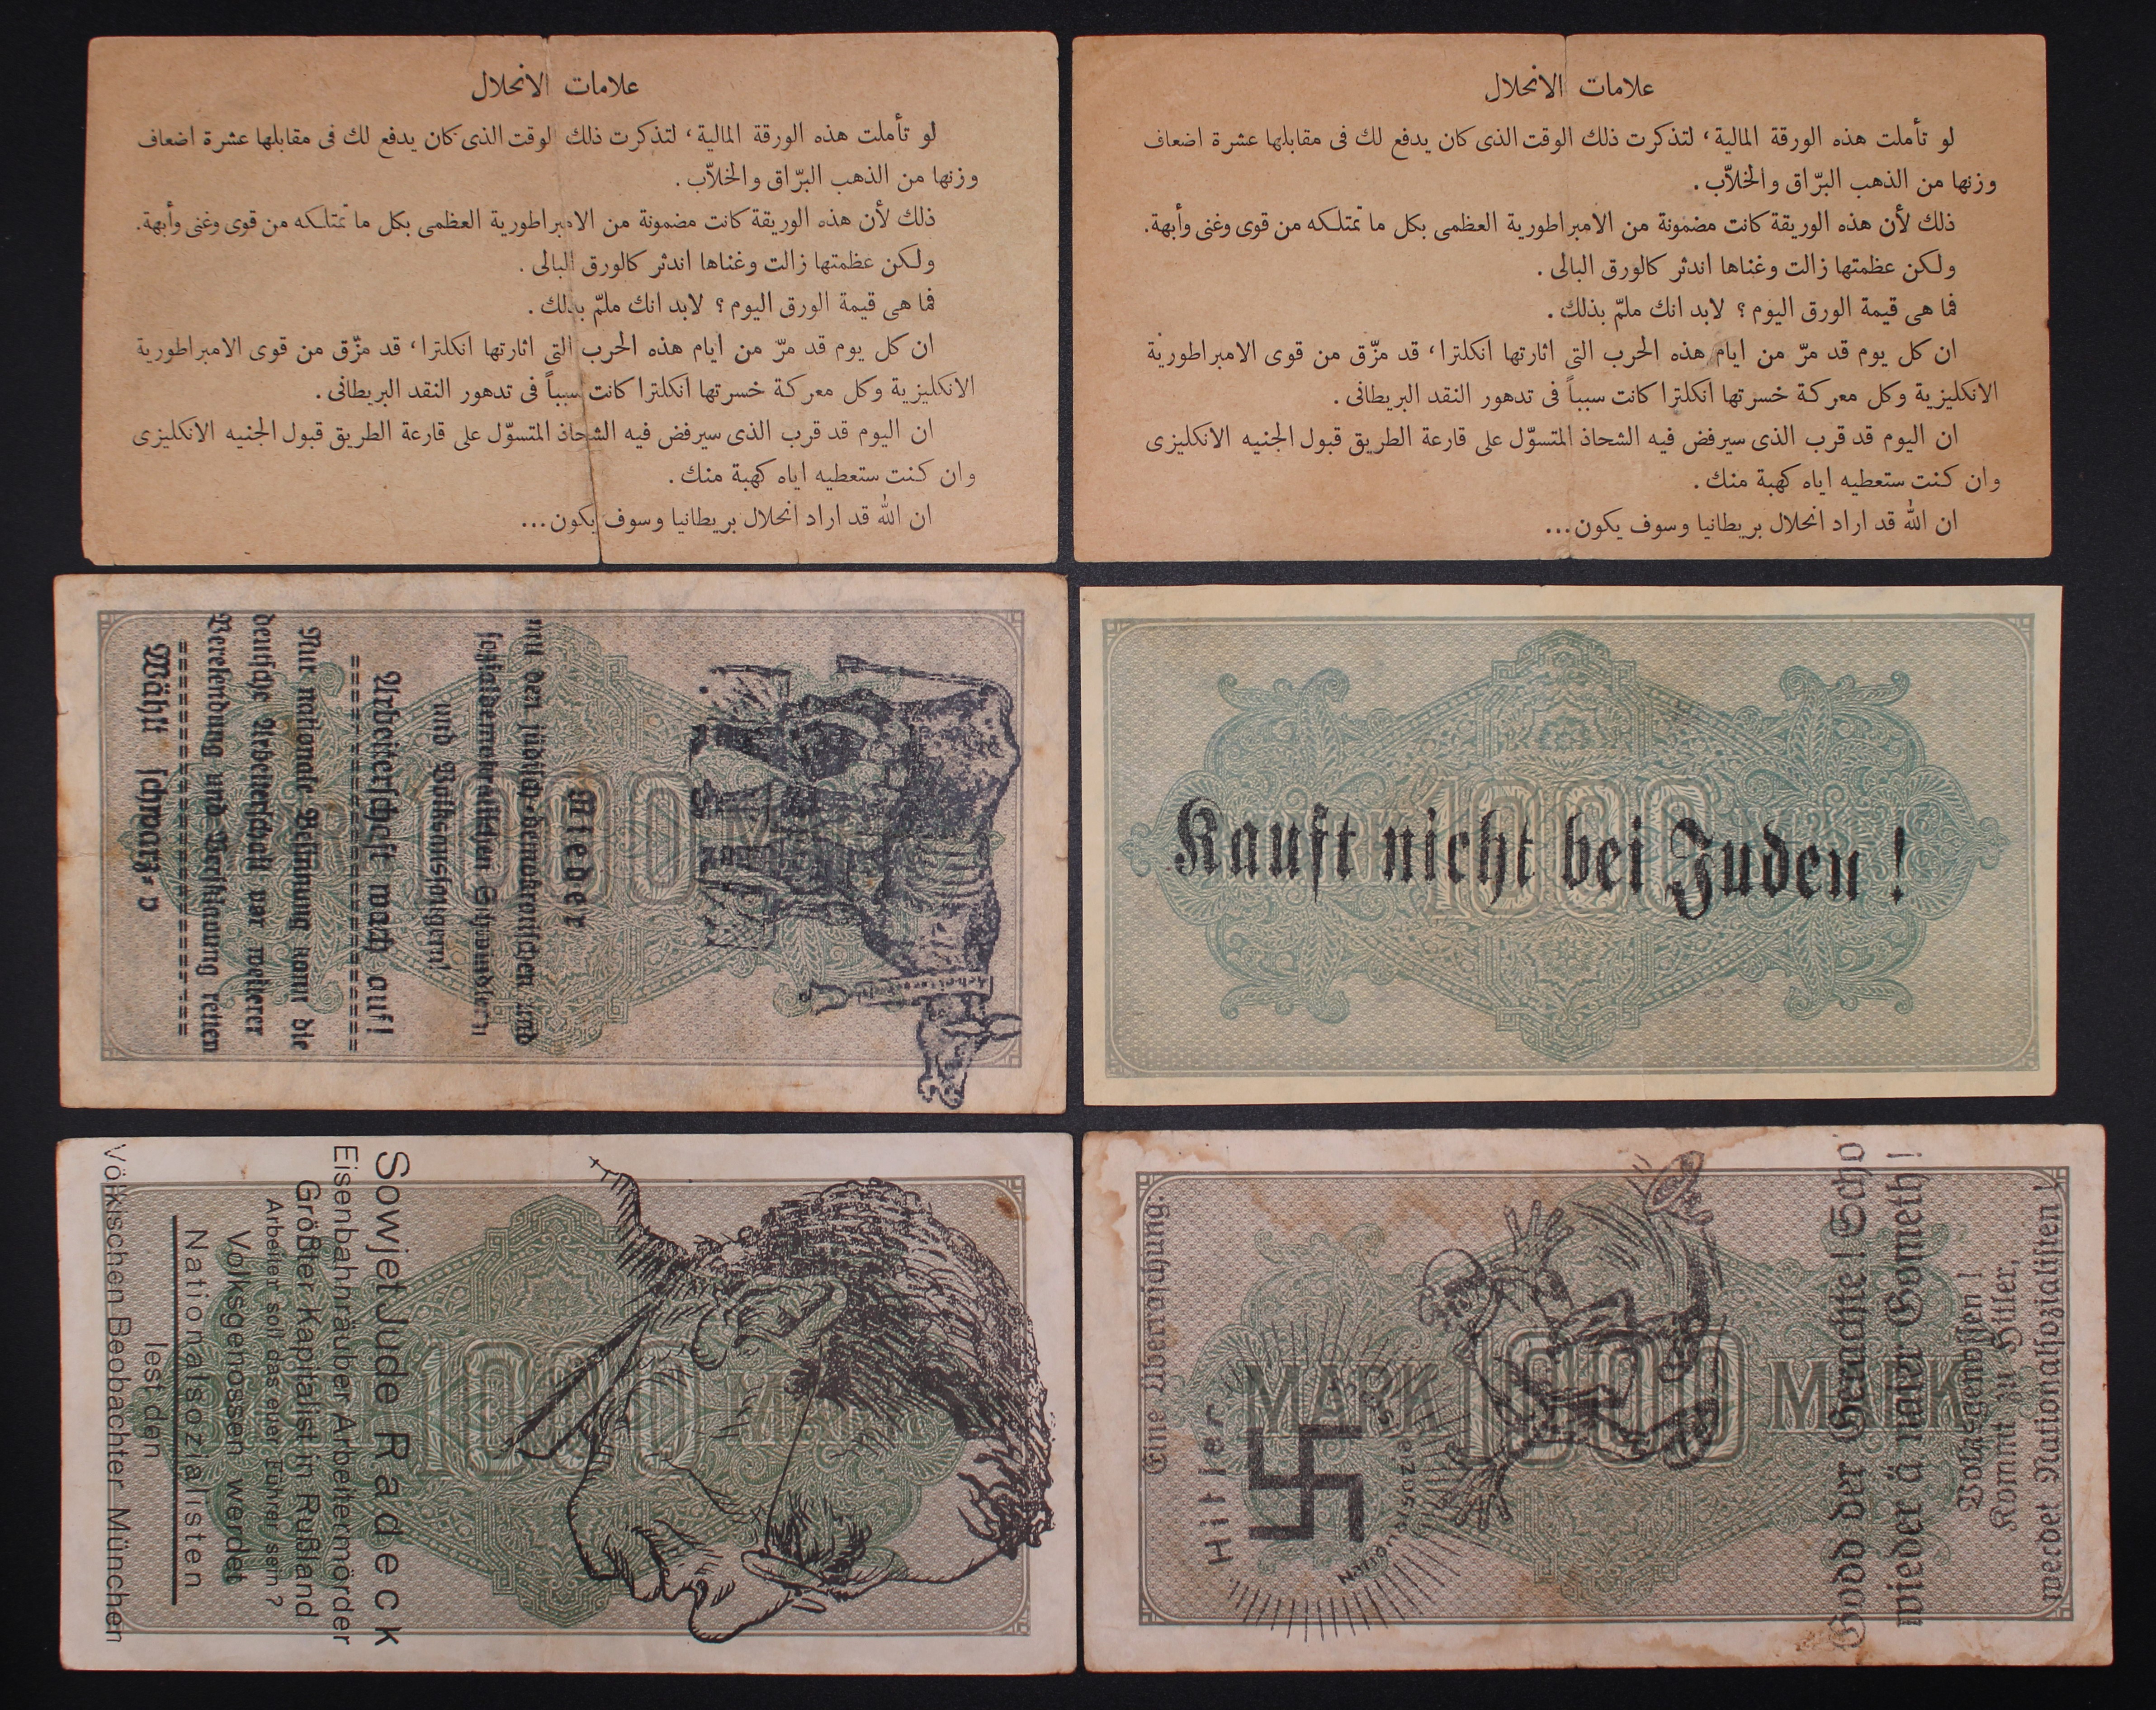 علامات الانحلال
لو تأملت هذه الورقة المالية، لتذكرت ذلك الوقت الذى كان يدفع لك فى مقابلها عشرة اضعاف
وزنها من الذهب البرّاق والخلاّب.
ذلك لأن هذه الوريقة كانت مضمونة من الامبراطورية العظمى بكل ما تمتلكه من قوى وغنى وأبهة.
ولكن عظمتها زالت وغناها اندثر كالورق البالى.
فما هى قيمة الورق اليوم؟ لابد انك ملمّ بذلك.
ان كل يوم قد مرّ من ايام هذه الحرب التى اثارتها انكلترا، قد مزّق من قوى الامبراطورية
الانكليزية وكل معركة خسرتها انكلترا كانت سبباً فى تدهور النقد البريطانى.
ان اليوم قد قرب الذى سيرفض فيه الشحاذ المتسوّل على قارعة الطريق قبول الجنيه الانكليزى
وان كنت ستعطيه اياه كهبة منك.
ان الله قد اراد انحلال بريطانيا وسوف يكون...
علامات الانحلال
لو تأملت هذه الورقة المالية، لتذكرت ذلك الوقت الذى كان يدفع لك فى مقابلها عشرة اضعاف
وزنها من الذهب البرّاق والخلاّب.
ذلك لأن هذه الوريقة كانت مضمونة من الامبراطورية العظمى بكل ما تمتلكه من قوى وغنى وأبهة.
ولكن عظمتها زالت وغناها اندثر كالورق البالى.
فما هى قيمة الورق اليوم؟ لابد انك ملمّ بذلك.
ان كل يوم قد مرّ من ايام هذه الحرب التى اثارتها انكلترا، قد مزّق من قوى الامبراطورية
الانكليزية وكل معركة خسرتها انكلترا كانت سبباً فى تدهور النقد البريطانى.
ان اليوم قد قرب الذى سيرفض فيه الشحاذ المتسوّل على قارعة الطريق قبول الجنيه الانكليزى
وان كنت ستعطيه اياه كهبة منك.
ان الله قد اراد انحلال بريطانيا وسوف يكون...
Nieder
mit den jüdisch-demokratischen und
sozialdemokratischen Schwindlern
und Volksaussaugern!
Arbeiterschaft wach auf!
Nur nationale Gesinnung kann die
deutsche Arbeiterschaft vor weiterer
Verelendung und Versklavung retten
Wählt schwarz-
1000 MARK
Kauft nicht bei Juden!
1000
Sowjet Jude Radeck
Eisenbahnräuber Arbeitermörder
Größter Kapitalist in Rußland
Arbeiter soll das euer Führer sein?
Volksgenossen werdet
Nationalsozialisten
lest den
Völkischen-Beobachter München
1000 MARK
Godd der Gerachte! Scho
wieder ä naier Gometh!
Volksgenossen!
Kommt zu Hittler,
werdet Nationalsozialisten!
Eine Überraschung.
Hittler
MARK 1000 MARK